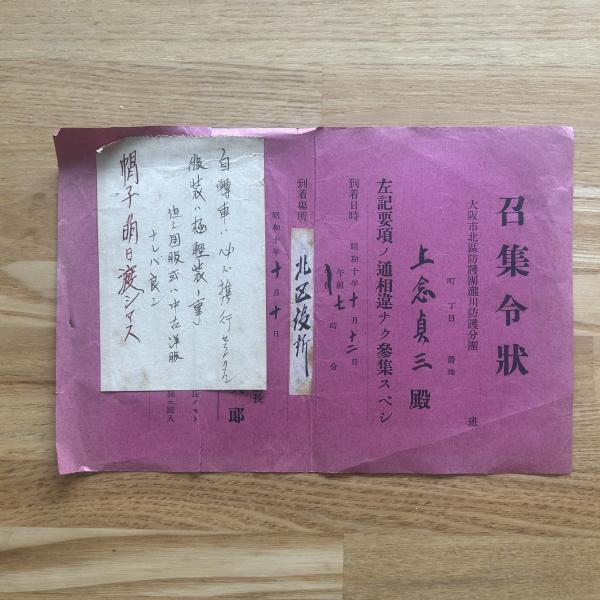 召集令狀
大阪市北區防護團瀧川防護分團 班
町 丁目 番地
上念貞三殿
左記要項ノ通相違ナク參集スベシ
到着日時 昭和十年十月十二日
午前七時 分
到着場所 北区役所
昭和十年十月十日
長
郎
記入
自轉車ハ必ズ携行セラレタシ
服装ハ極軽装ノ事
迫テ団服或ハ中古洋服
ナレバ良シ
帽子明日渡シマス